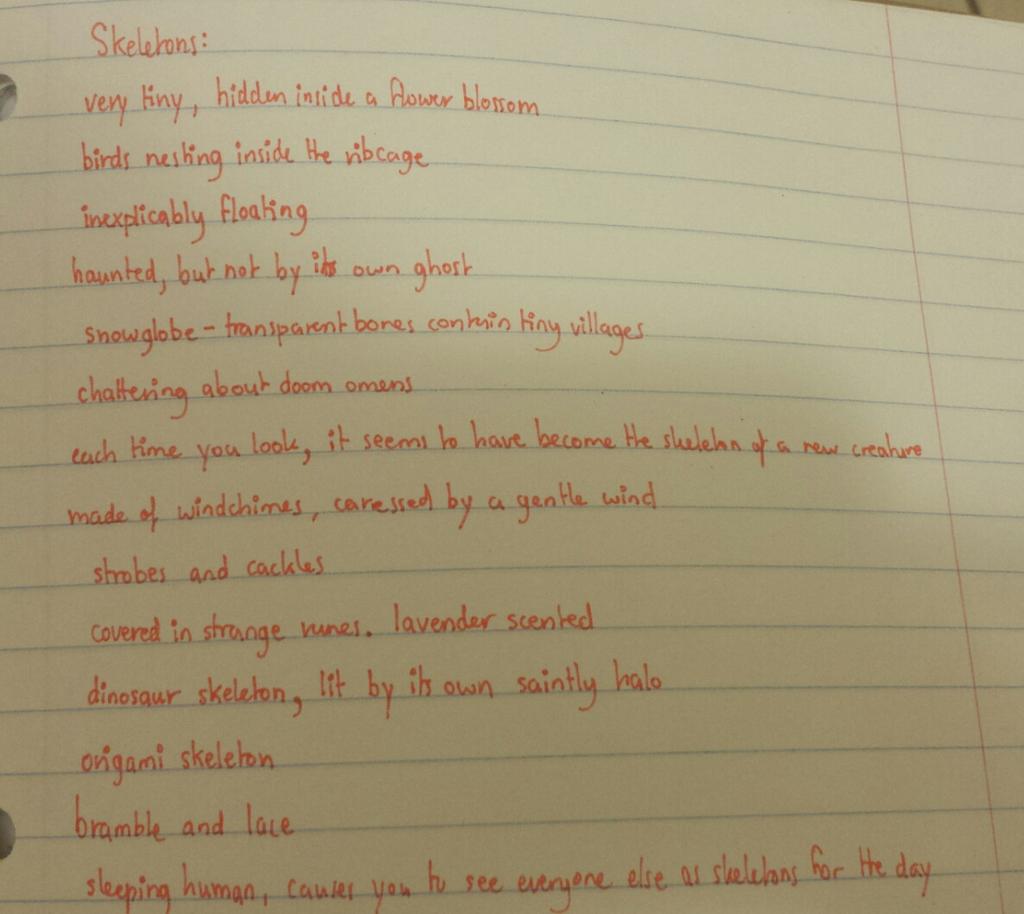 Skeletons:
very tiny, hidden inside a flower blossom
birds nesting inside the ribcage
inexplicably floating
haunted, but not by its own ghost
snowglobe - transparent bones contain tiny villages
chattering about doom omens
each time you look, it seems to have become the skeleton of a new creature
made of windchimes, caressed by a gentle wind
strobes and cackles
covered in strange runes. lavender scented
dinosaur skeleton, lit by its own saintly halo
origami skeleton
bramble and lace
sleeping human, causes you to see everyone else as skeletons for the day